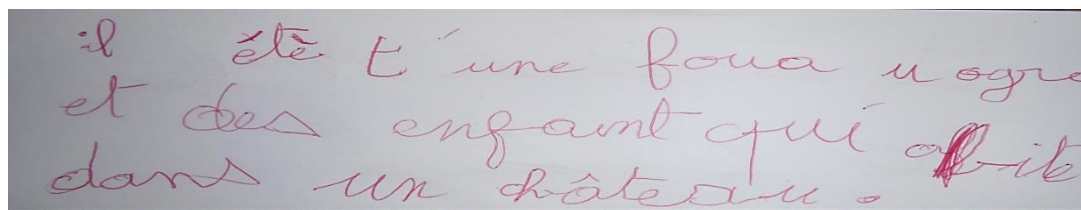 il étè t'une foua u ogre
et des enfaint qui abite
dans un château.